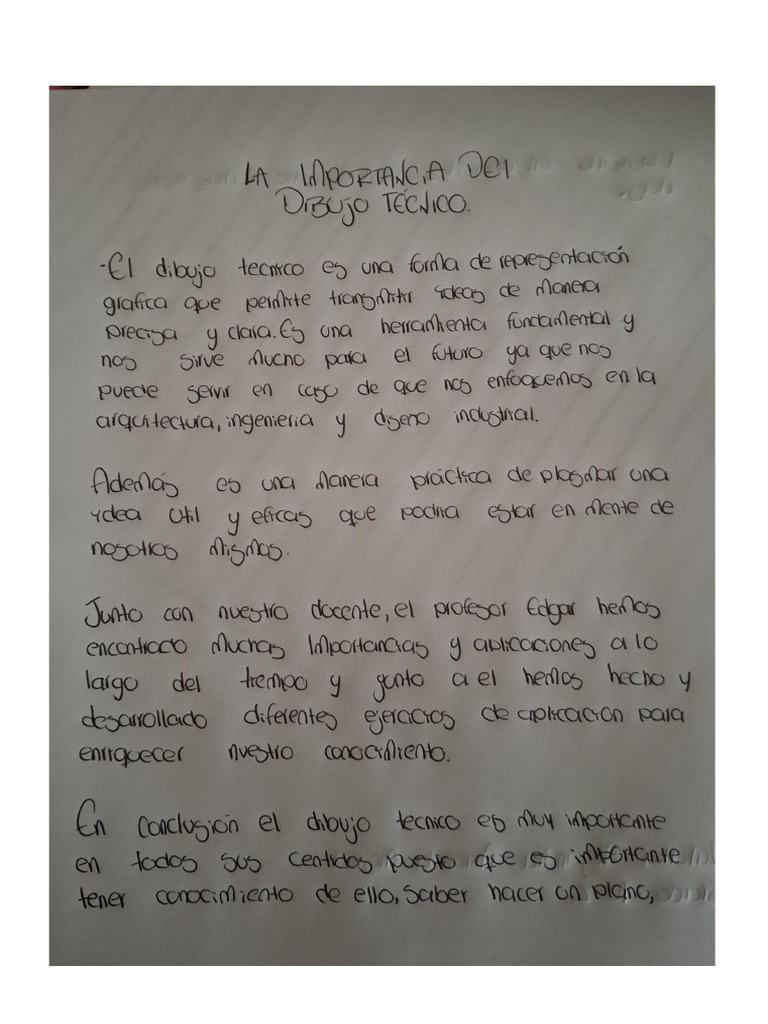 LA IMPORTANCIA DEl
DIBUJO TÉCNICO.
-El dibujo tecnico es una forma de representación
grafica que permite transmitir ydeas de manera
precisa y clara. Es una herramienta fundamental y
nos sirve mucho para el futuro ya que nos
puede servir en caso de que nos enfoquemos en la
arquitectura, ingenieria y diseño industrial.
Además es una manera práctica de plasmar una
ydea util y eficas que podria estar en mente de
nosotros mismos.
Junto con nuestro docente, el profesor Edgar hemos
encontrado muchas importancias y aplicaciones a lo
largo del tiempo y junto a el hemos hecho y
desarrollado diferentes ejercicios de aplicación para
enriquecer nuestro conocimiento.
En conclusión el dibujo tecnico es muy importante
en todos sus centidos puesto que es importante
tener conocimiento de ello, saber hacer un plano,